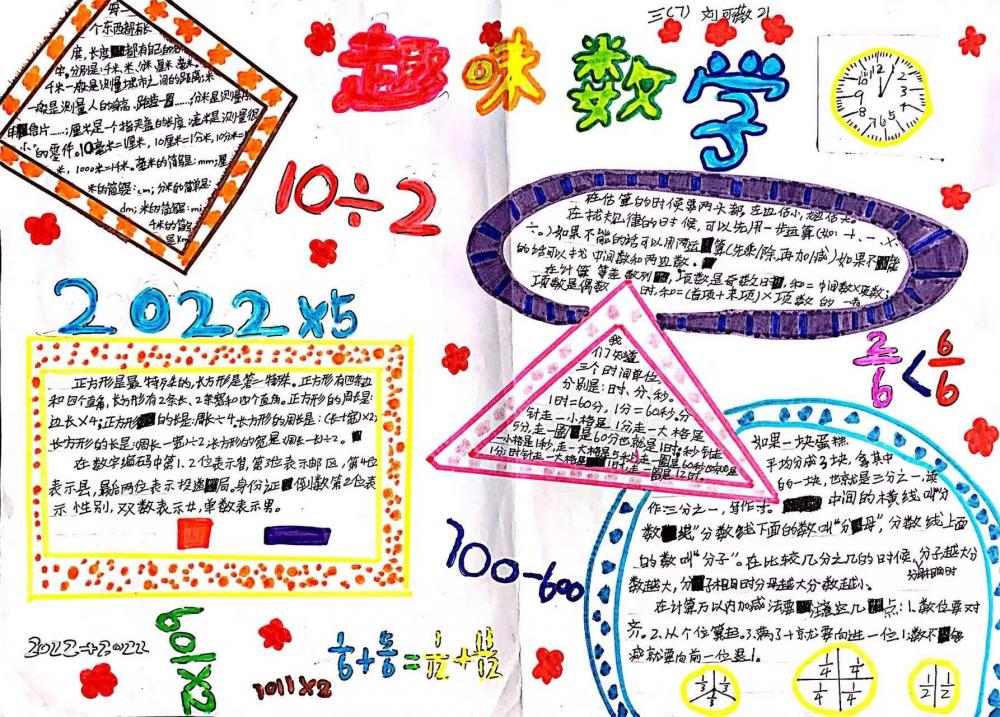 三(7) 刘可薇 21
趣味数学
每一
个东西都有长
度,长度都有自己的
千米一般是测量城市之间的距离;米
一般是测量人的身高
小的零件。10毫米=1厘米,10厘米=1分米,10分米=1
米,1000米=1千米。毫米的简写:mm;厘
米的简写:cm;分米的简写:
dm;米的简写:m;
千米的简写
是km
12
1
2
3
4
5
6
7
8
9
10
11
10÷2
在估算的时候要两头都
在找规律的时候,可以先用一步运算(如:+、-、×、
÷。)如果不能的话可以用两运算(先乘除,再加减)如果不能
的话可以找中间数和两边数。
在计算等差数列,项数是奇数时,和=中间数×项数;
项数是偶数时,和=(首项+末项)×项数的一半
2022×5
2/6<6/6
正方形是最特殊的,长方形是第二特殊。正方形有四条边
和四个直角,长方形有2条长、2条宽和四个直角。正方形的周长是:
边长×4;正方形的长是:周长÷4。长方形的周长是:(长+宽)×2;
长方形的长是:周长-宽)÷2;长方形的宽是:周长-长)÷2。
在数字编码中第1、2位表示省,第3位表示邮区,第4位
表示县,最后两位表示投递局。身份证倒数第2位表
示性别,双数表示女,单数表示男。
我
们知道
三个时间单位,
分别是:时、分、秒。
1时=60分,1分=60秒。分
针走一小格是1分走一大格是
5分,走一圈是60分也就是1时;秒针走
一小格是1秒,走一大格是5秒,走一圈是60秒也就是
1分时针走一大格是1时,走一圈是12时。
如果一块蛋糕
平均分成了3块,拿其中
的一块,也就是三分之一,读
作三分之一,写作 中间的横线叫“分
数线”分数线下面的数叫“分母”,分数线上面
的数叫“分子”。在比较几分之几的时候,分子越大分
分母相同时
数越大,分子相同时分母越大分数越小、
在计算万以内加减法要注意这几点:1、数位要对
齐。2、从个位算起。3、满了十就要向进一位1;数不够
减就要向前一位退1。
700-600
601×2
2022÷2022
1011×2
1/6+5/6=1/12+11/12
1/3 1/3 1/3
1/4 1/4
1/4 1/4
1/2 1/2